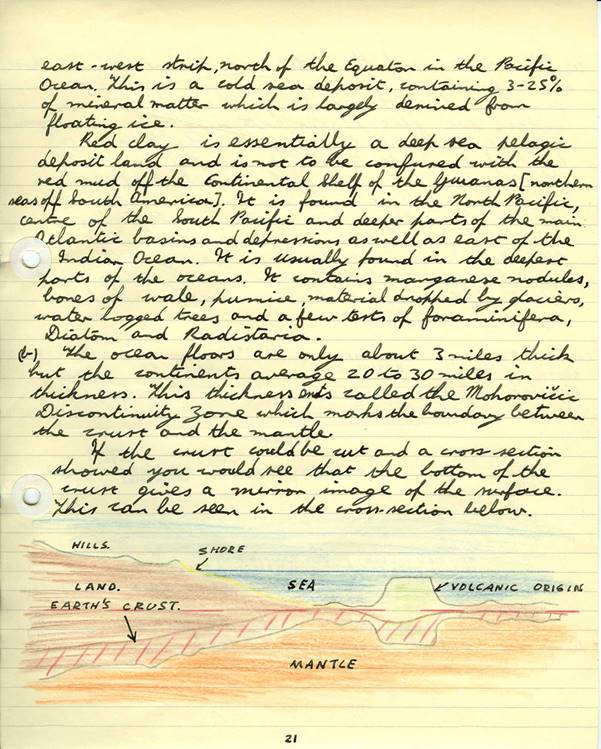 east-west strip, north of the Equator in the Pacific
Ocean. This is a cold sea deposit, containing 3-25%
of mineral matter which is largely derived from
floating ice.
Red clay is essentially a deep sea pelagic
deposit land and is not to be confused with the
red mud off the Continental Shelf of the Guranas [northern
seas off South America]. It is found in the North Pacific,
centre of the South Pacific and deeper parts of the main
Atlantic basins and depressions as well as east of the
Indian Ocean. It is usually found in the deepest
parts of the oceans. It contains manganese nodules,
bones of wale, pumice, material dropped by glaciers,
water logged trees and a few tests of foraminifera,
Diatom and Radistaria.
(b) The ocean floors are only about 3 miles thick
but the continents average 20 to 30 miles in
thickness. This thickness ends called the Mohorovičić
Discontinuity Zone which marks the boundary between
the crust and the mantle
If the crust could be cut and a cross-section
showed you would see that the bottom of the
crust gives a mirror image of the surface.
This can be seen in the cross-section below.
HILLS.
SHORE
LAND.
SEA
VOLCANIC ORIGIN
EARTH'S CRUST.
MANTLE
21